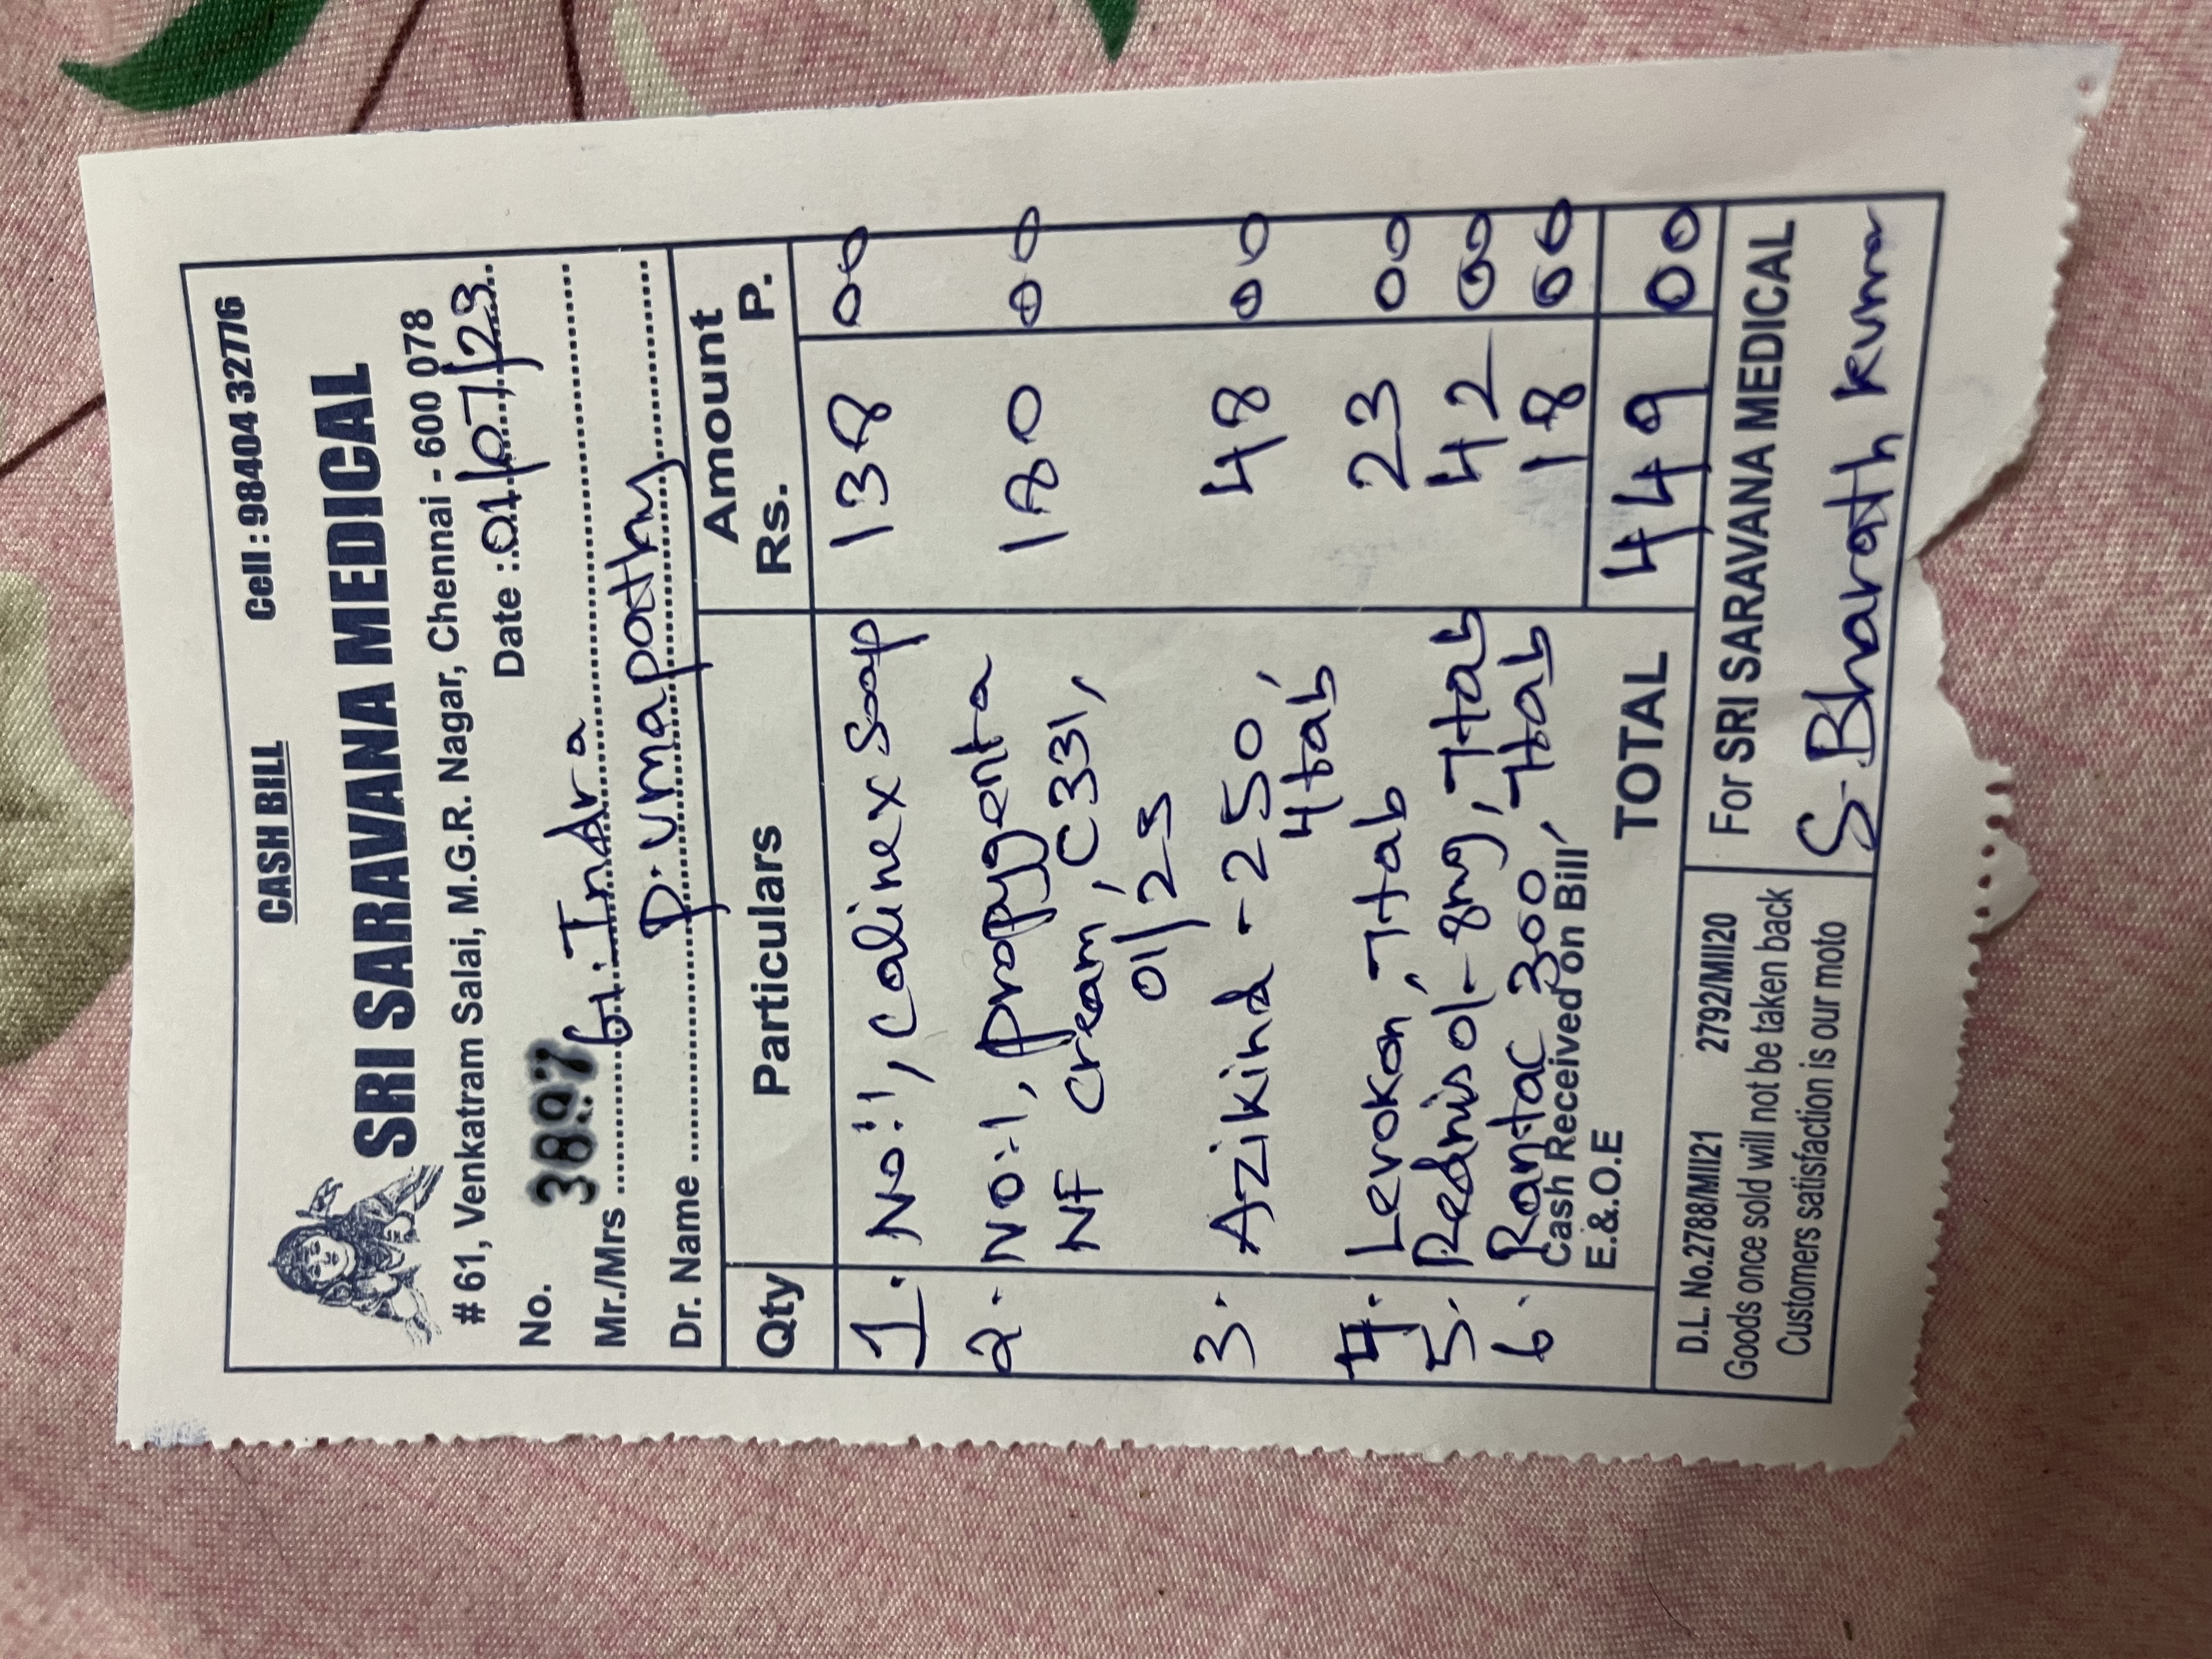 CASH BILL Cell : 98404 32776
SRI SARAVANA MEDICAL
# 61, Venkatram Salai, M.G.R. Nagar, Chennai - 600 078
Date : 01/07/23
No. 3897
Mr./Mrs G. Indra
Dr. Name P. Umapathy
Qty Particulars Amount
Rs. P.
1. No:1, Calinex Soap 138 00
2. No:1, propygenta 180 00
NF Cream, C331,
01/25
3. Azikind - 250, 48 00
4 tab
4. Levokon, 7 tab 23 00
5. Rednisol - 8mg, 7 tab 42 00
6. Rantac 300, 7 tab 18 00
Cash Received on Bill
E.&.O.E
TOTAL 449 00
D.L. No.2788/MII21 2792/MII20
Goods once sold will not be taken back
Customers satisfaction is our moto
For SRI SARAVANA MEDICAL
S. Bharath Kumar